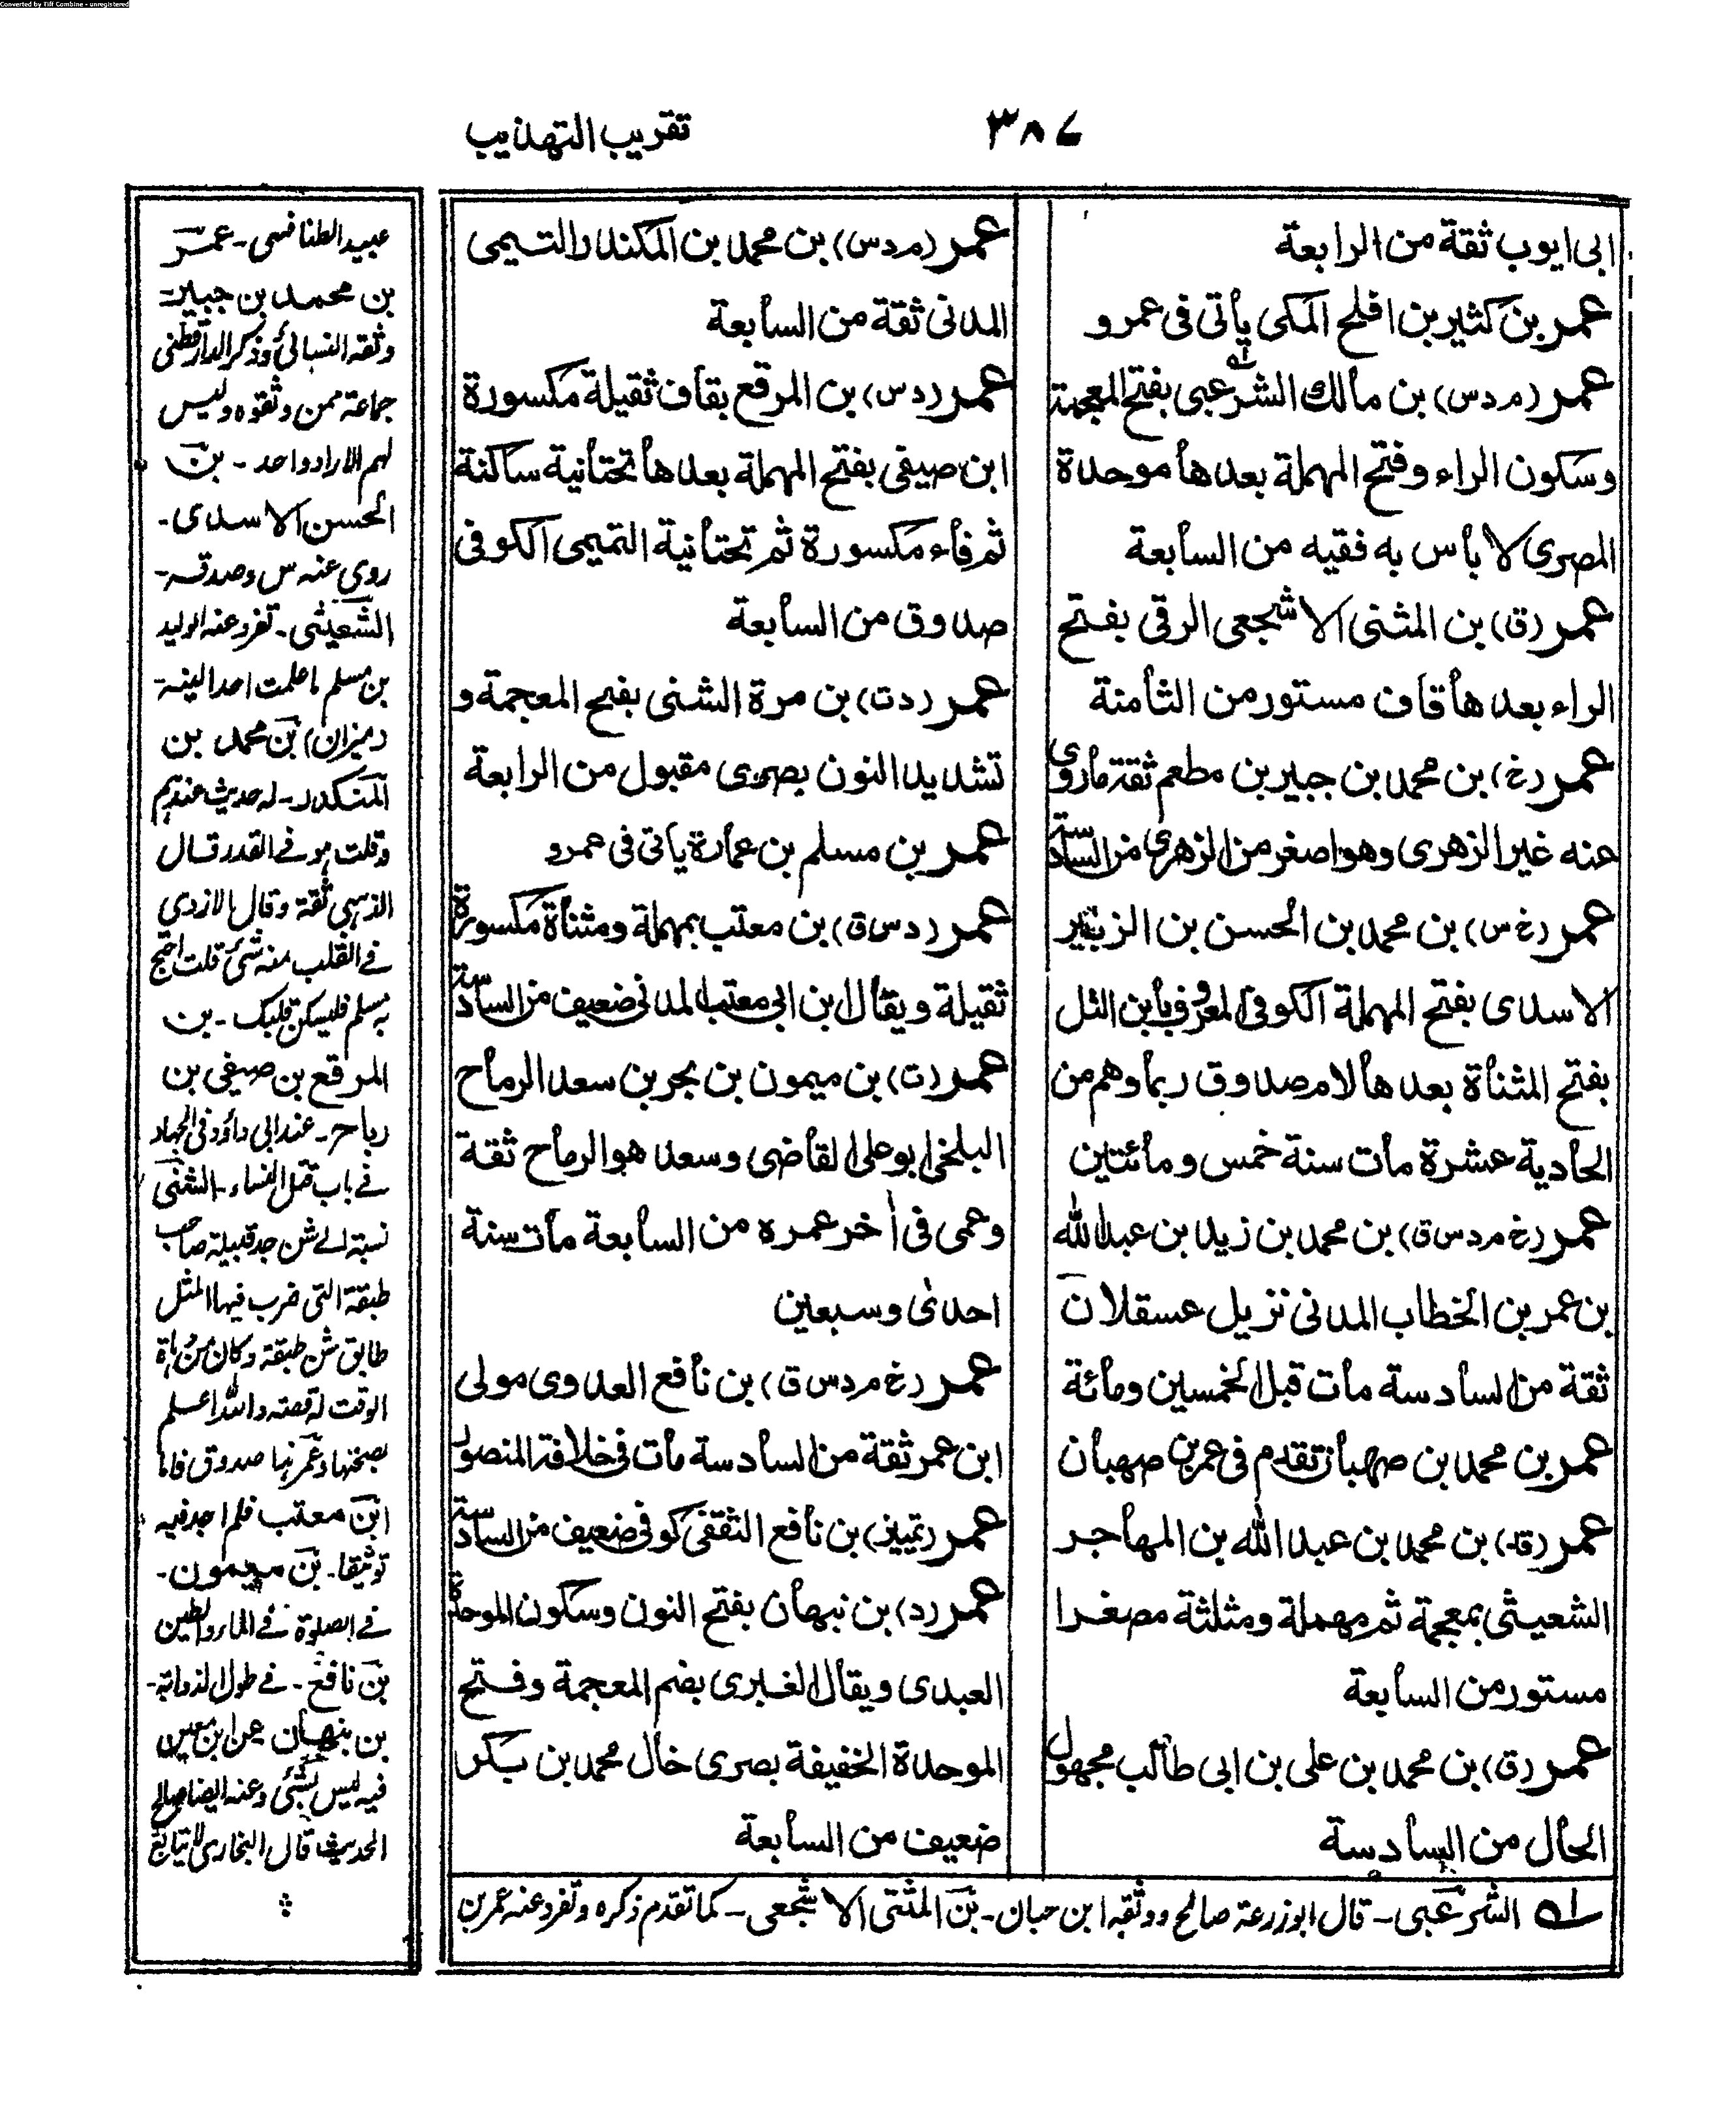 Converted by Tiff Combine - unregistered
٣٨٧
تقريب التهذيب
ابى ايوب ثقة من الرابعة
عمر بن كثير بن افلح المكى يأتى فى عمرو
عمر (م د س) بن مالك الشرعبى بفتح المعجمة
وسكون الراء وفتح المهملة بعدها موحدة
المصرى لا بأس به فقيه من السابعة
عمر (ق) بن المثنى الاشجعى الرقى بفتح
الراء بعدها قاف مستور من الثامنة
عمر (خ) بن محمد بن جبير بن مطعم ثقة ماروى
عنه غير الزهرى وهو اصغر من الزهرى من السادسة
عمر (خ س) بن محمد بن الحسن بن الزبير
الاسدى بفتح المهملة الكوفى المعروف بابن التل
بفتح المثناة بعدها لام صدوق ربما وهم من
الحادية عشرة مات سنة خمس ومائتين
عمر (خ م د س ق) بن محمد بن زيد بن عبدالله
بن عمر بن الخطاب المدنى نزيل عسقلان
ثقة من السادسة مات قبل الخمسين ومائة
عمر بن محمد بن صهبان تقدم فى عمر بن صهبان
عمر (ق) بن محمد بن عبد الله بن المهاجر
الشعيثى بمعجمة ثم مهملة ومثلثة مصغرا
مستور من السابعة
عمر (ق) بن محمد بن على بن ابى طالب مجهول
الحال من السادسة
عمر (م د س) بن محمد بن المكندر التسيمى
المدنى ثقة من السابعة
عمر (د س) بن المرقع بقاف ثقيلة مكسورة
ابن صيفى بفتح المهملة بعدها تحتانية ساكنة
ثم فاء مكسورة ثم تحتانية التميمى الكوفى
صدوق من السابعة
عمر (د ت) بن مرة الشنى بفتح المعجمة و
تشديد النون بصرى مقبول من الرابعة
عمر بن مسلم بن عمارة يأتى فى عمرو
عمر (د س ق) بن معتب بمهملة ومثناة مكسورة
ثقيلة ويقال ابن ابى معتب المدنى ضعيف من السادسة
عمر (ت) بن ميمون بن بحر بن سعد الرماح
البلخى ابو على القاضى وسعد هو الرماح ثقة
وعمى فى أخر عمره من السابعة مات سنة
احدى وسبعين
عمر (خ م د س ق) بن نافع العدوى مولى
ابن عمر ثقة من السادسة مات فى خلافة المنصور
عمر (تمييز) بن نافع الثقفى كوفى ضعيف من السادسة
عمر (د) بن نبهان بفتح النون وسكون الموحدة
العبدى ويقال الغبرى بضم المعجمة وفتح
الموحدة الخفيفة بصرى خال محمد بن بكر
ضعيف من السابعة
له الشرعبى - قال ابو زرعة صالح ووثقه ابن حبان - بن المثنى الاشجعى - كما تقدم ذكره وتفرد عنه عمر بن
عبيد الطنافسى - عمر
بن محمد بن جبير -
وثقه النسائى وذكر الدارقطنى
جماعة ممن وثقوه وليس
لهم الا راو واحد - بن
الحسن الاسدى -
روى عنه س وصدقه -
الشعيثى - تفرد عنه الوليد
بن مسلم ما علمت احدا لينه -
(ميزان) بن محمد بن
المنكدر - له حديث عندهم
وقلت هو فى القدر قال
الذهبى ثقة وقال الازدى
فى القلب منه شئ قلت احتج
به مسلم فليسكن قلبك - بن
المرقع بن صيفى بن
رباح - عند ابى داؤد فى الجهاد
فى باب قتل النساء - الشنى
نسبة الى شن جد قبيلة صاحب
طبقة التى ضرب فيها المثل
طابق شن طبقة وكان من
الوقت له قصته والله اعلم
بصحتها وعمر هذا صدوق فاما
ابن معتب فلم اجد فيه
توثيقا - بن ميمون -
فى الصلوة فى الماء والطين
بن نافع - فى طول
بن بنهان عن ابن معين
فيه ليس بشئ وعنه ايضا صالح
الحديث قال البخارى لا يتابع